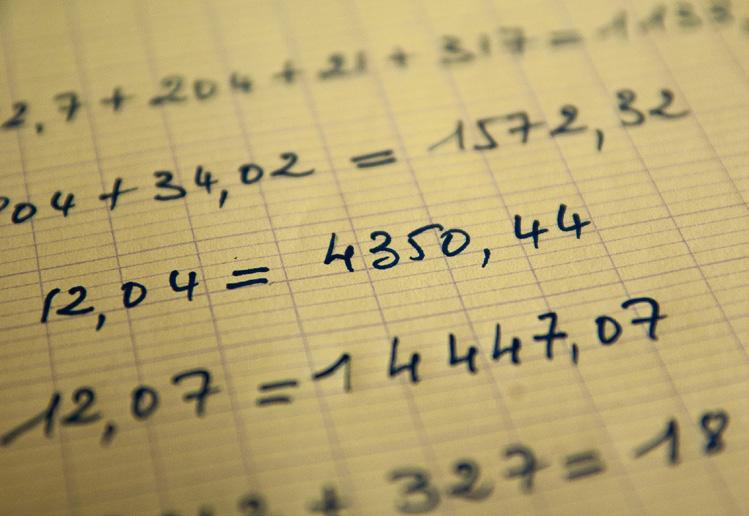 2,7 + 204 + 21 + 317 = 1133,
204 + 34,02 = 1572,32
12,04 = 4350,44
12,07 = 14447,07
+ 327 = 18